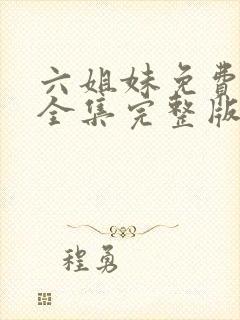 六姐妹免費
全集完整版
程勇